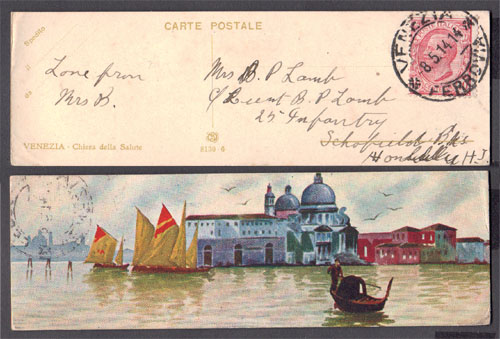 CARTE POSTALE
Love from
Mrs B.
Mrs B. P Lamb
c/ Lieut B. P Lamb
25 Infantry
Schofield Bks
Honolulu H.J.
VENEZIA - Chiesa della Salute
8130 6
VENEZIA
8.5.14.14
FERROVIA